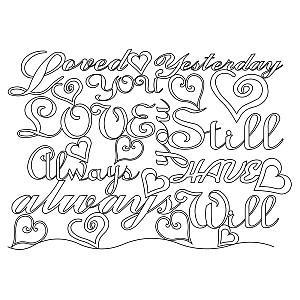 Loved Yesterday
YOU
LOVE you Still
Always HAVE
always Will